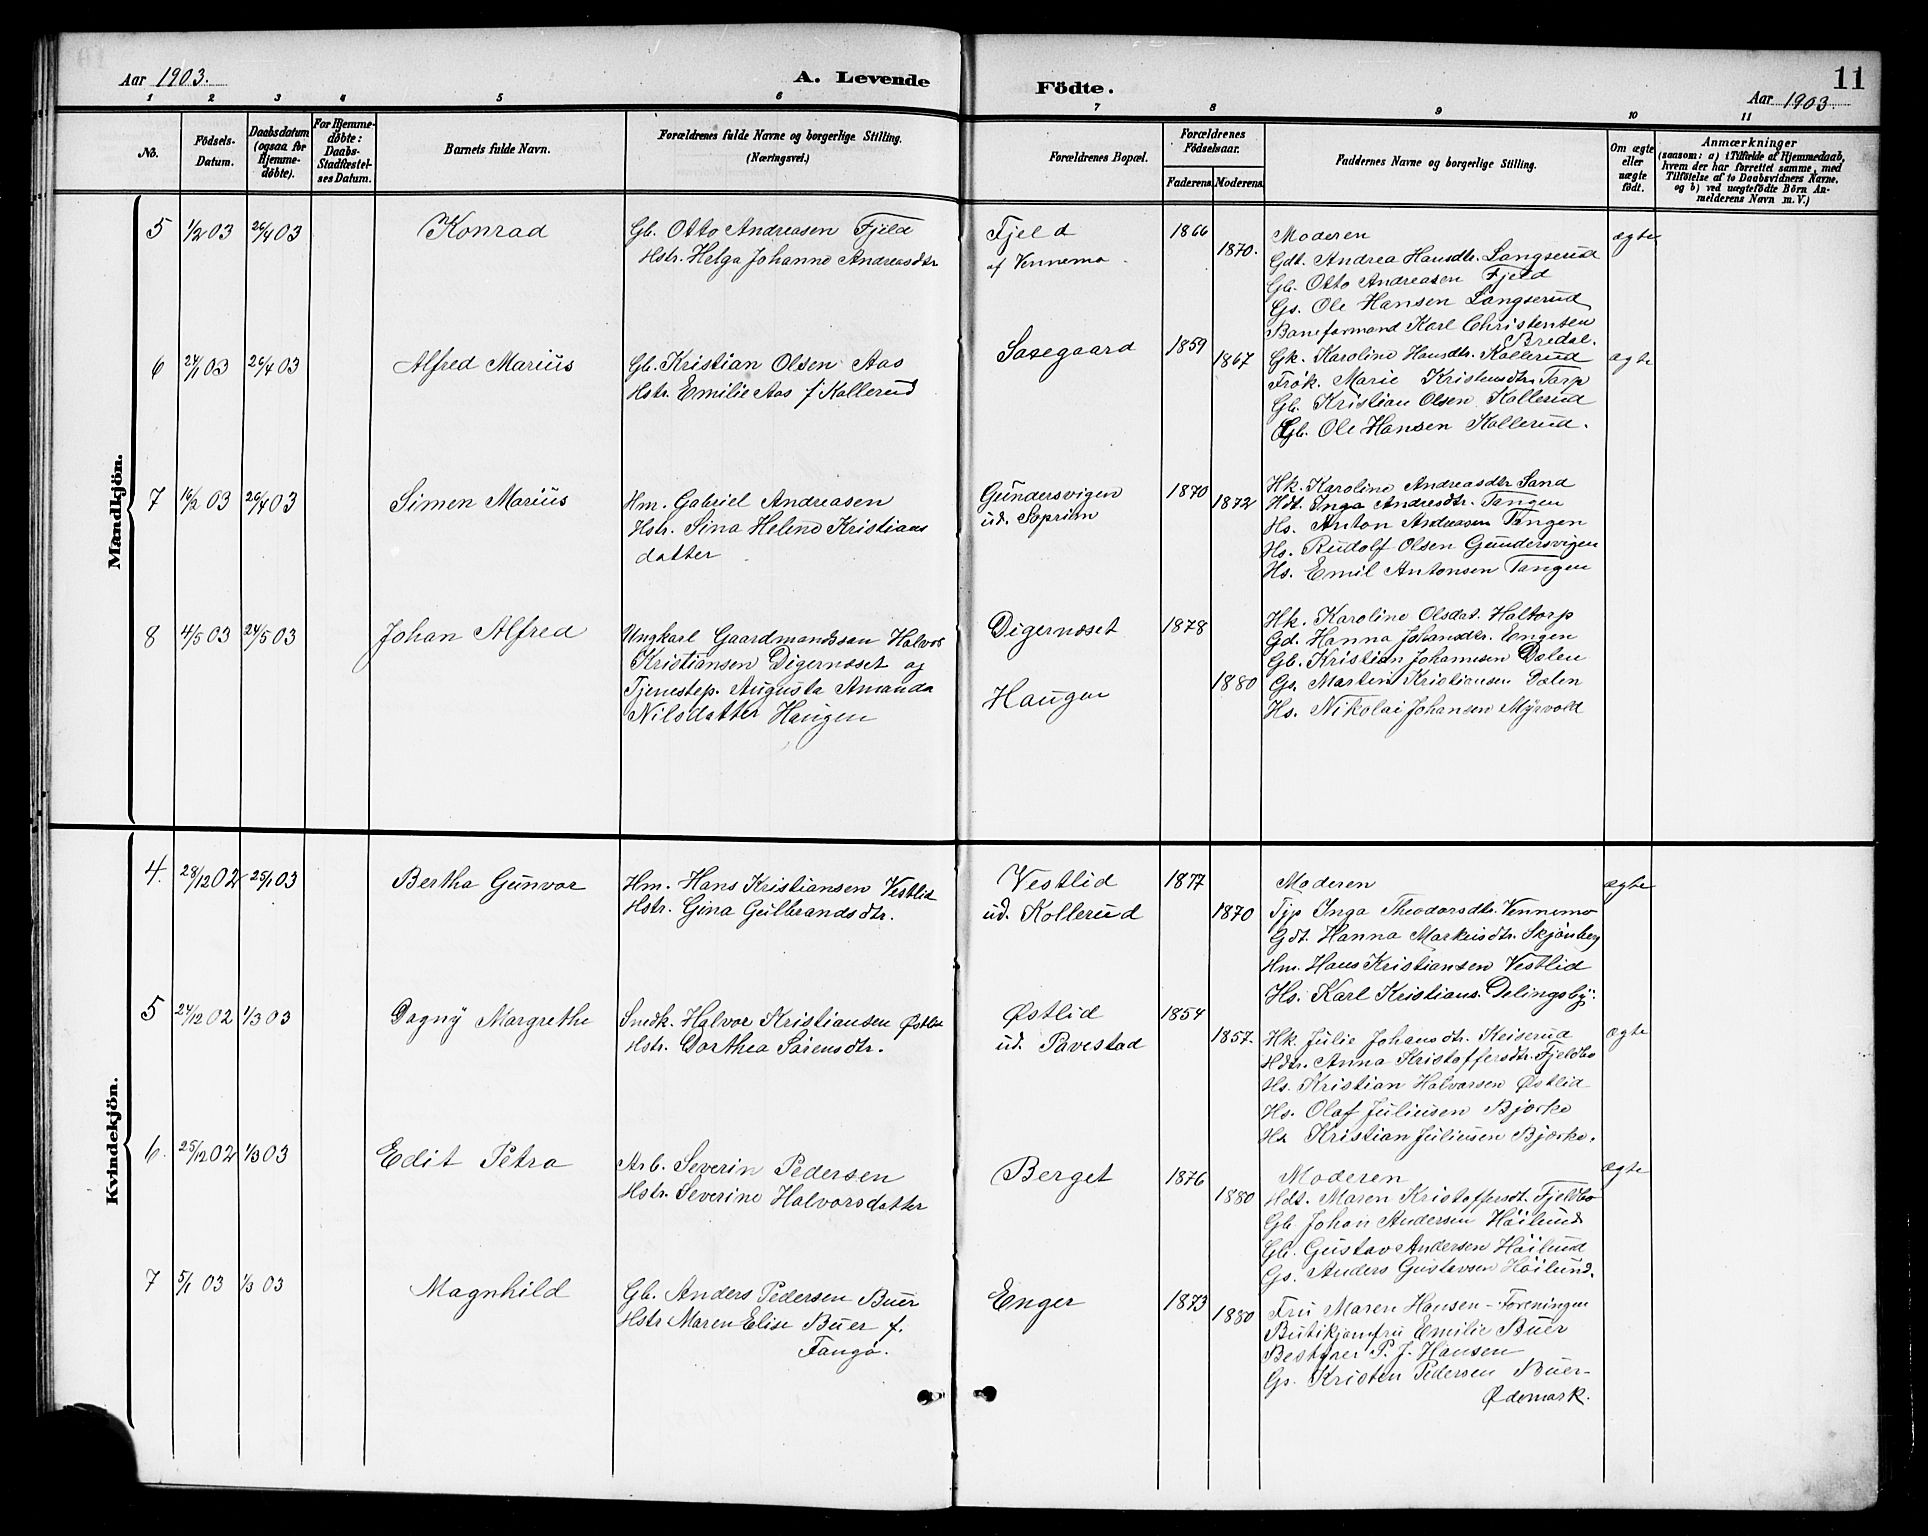 Aar 1903.
A. Levende
Födte.
11
Aar 1903.
1 2 3 4 5 6 7 8 9 10 11
No.
Födsels-Datum.
Daabsdatum (ogsaa for Hjemmedøbte).
For Hjemmedøbte: Daabs-Stadfæstelses Datum.
Barnets fulde Navn.
Forældrenes fulde Navne og borgerlige Stilling. (Næringsvei.)
Forældrenes Bopæl.
Forældrenes Födselsaar.
Faderens. Moderens.
Faddernes Navne og borgerlige Stilling.
Om ægte eller uægte födt.
Anmærkninger
(saasom: a) i Tilfælde af Hjemmedaab, hvem der har forrettet samme, med Tilföielse af to Daabsvidners Navne, og b) ved uægtefödte Börn Anmelderens Navn m. V.)
Mandkjön.
5 1/2 03 26/4 03 Konrad
Gb. Otto Andreasen Fjeld
Hstr. Helga Johanne Andreasdtr
Fjeld
af Vennemo
1866 1870.
Moderen
Gdt. Andrea Hansdtr. Langserud
Gb. Otto Andreasen Fjeld
Gs. Ole Hansen Langserud
Baneformand Karl Christensen
Bredal.
ægte
6 24/1 03 26/4 03 Alfred Marius
Gb. Kristian Olsen Aas
Hstr. Emilie Aas f. Kollerud
Saxegaard
1859 1867
Gk. Karoline Hansdtr. Kollerud
Frøk. Marie Kristensdtr. Tarp
Gb. Kristian Olsen Kollerud
Gb. Ole Hansen Kollerud.
ægte
7 16/2 03 26/4 03 Simen Marius
Hm. Gabriel Andreasen
Hstr. Sina Helene Kristians
datter
Gundersvigen
ud. Soprim
1870 1872
Hk. Karoline Andreasdtr Sand
Hdt. Inga Andreasdtr. Tangen
Hs. Anton Andreasen Tangen
Hs. Rudolf Olsen Gundersvigen
Hs. Emil Antonsen Tangen
8 4/5 03 24/5 03 Johan Alfred
Ungkarl Gaardmandssøn Halvor
Kristiansen Digernæset og
Tjenestep. Augusta Amanda
Nilsdatter Haugen
Digernæset
Haugen
1878 1880
Hk. Karoline Olsdat. Haltorp
Gd. Hanna Johansdtr. Engen
Gb. Kristian Johannesen Dalen
Gs. Martin Kristiansen Dalen
Hs. Nikolai Johansen Myrvold
Kvindekjön.
4. 28/12 02 25/1 03 Bertha Gunvor
Hm. Hans Kristiansen Vestlid
Hstr. Gina Gulbrandsdtr.
Vestlid
ud. Kollerud
1877 1870
Moderen
Tjp Inga Theodorsdtr. Vennemo
Gdt. Hanna Markusdtr. Skjønberg
Hm. Hans Kristiansen Vestlid
Hs. Karl Kristians. Delingsby.
ægte
5 24/12 02 1/3 03 Dagny Margrethe
Snedk. Halvor Kristiansen Østlid
Hstr. Dorthea Sørensdtr.
Østlid
ud. Pavestad
1854 1857.
Hk. Julie Johansdtr. Keiserud
Hdtr. Anna Kristoffersdtr. Fjeldbo
Hs. Kristian Halvorsen Østlid
Hs. Olaf Juliusen Bjørke
Hs Kristian Juliusen Bjørke.
ægte
6. 25/12 02 1/3 03 Edit Petra
Arb. Severin Pedersen
Hstr. Severine Halvorsdatter
Berget
1876 1880
Moderen
Hdt. Maren Kristoffersdt. Fjeldbo
Gb Johan Andersen Höilund
Gb. Gustav Andersen Höilund
Gs. Anders Gustavsen Höilund.
ægte
7 5/1 03 1/3 03 Magnhild
Gb. Anders Pedersen Buer
Hstr Maren Elise Buer f.
Fangø.
Enger
1873 1880
Fru Maren Hansen - Foreningen
Butikjomfru Emilie Buer
Bestyrer P. J. Hansen
Gs. Kristen Pedersen Buer-
Ødemark.